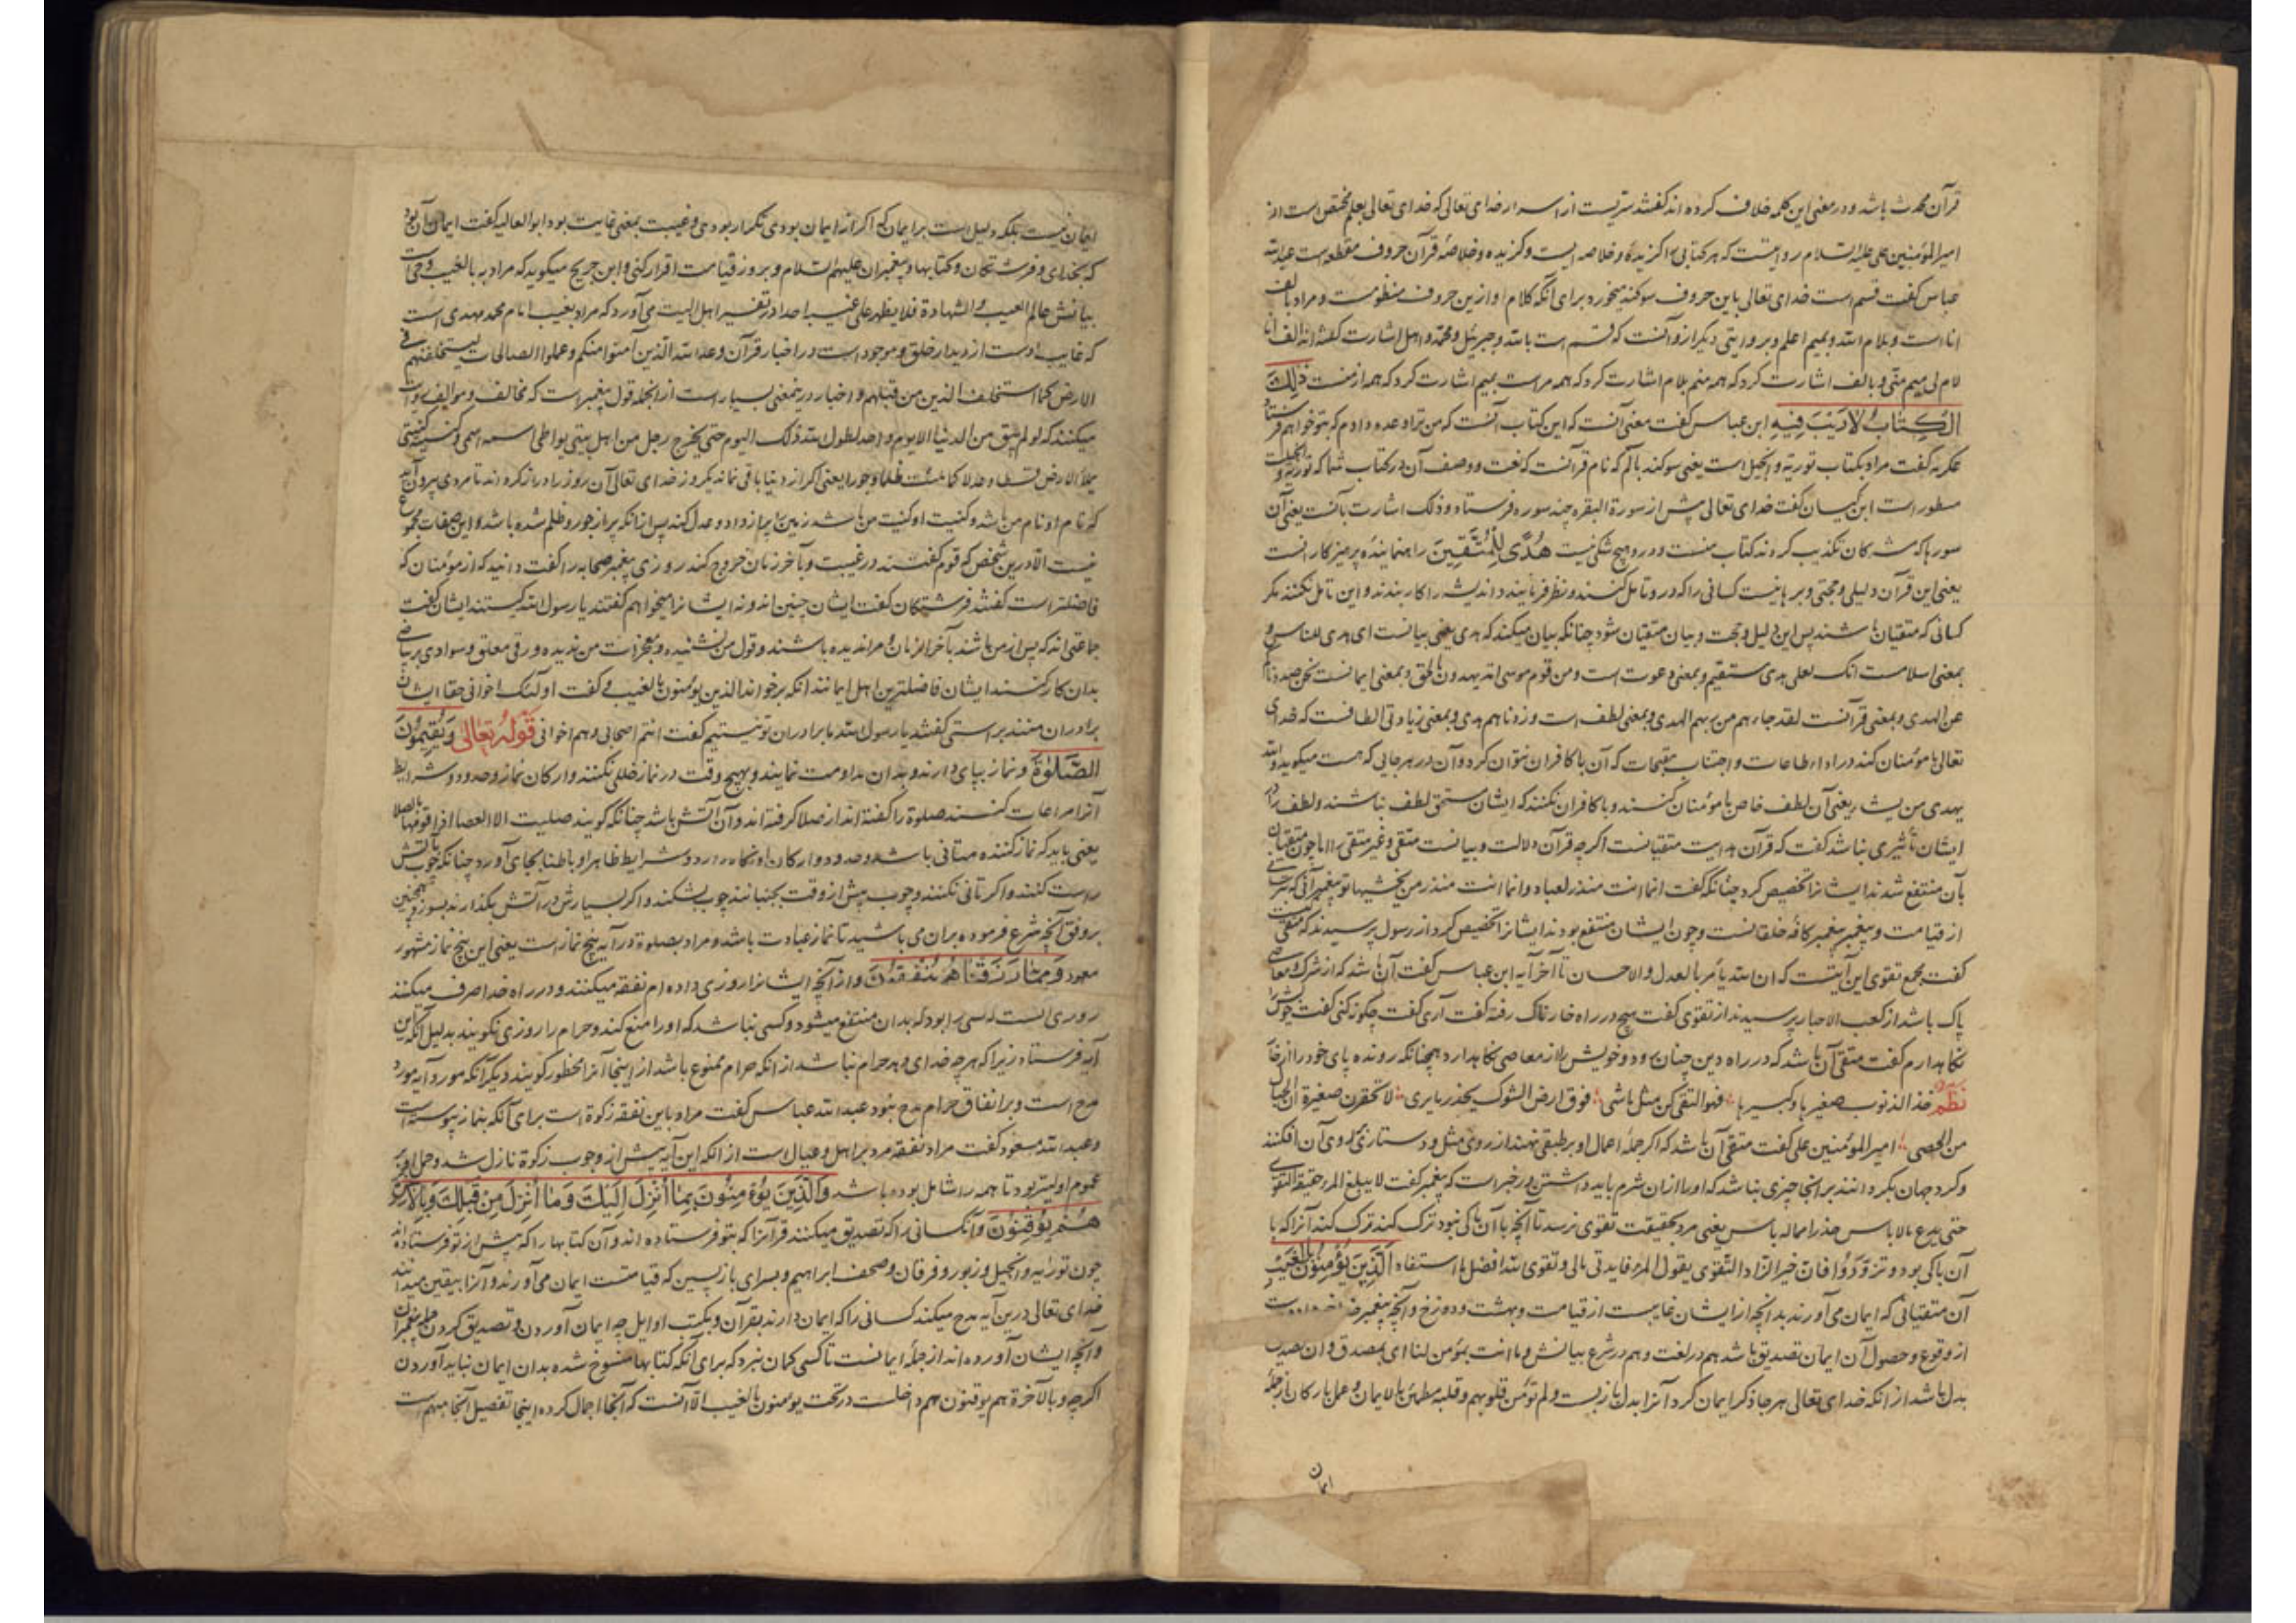 قرآن محدث باشد و در معنی این کلمه خلاف کرده اند گفتند سریست از اسرار خدای تعالی که خدای تعالی بعلم مختص است از
امیرالمؤمنین علی علیه السلام روایتست که هر کتابی را گزیده و خلاصه ایست و گزیده و خلاصه قرآن حروف مقطعه است عبدالله
عباس گفت قسم است خدای تعالی باین حروف سوگند میخورد برای آنکه کلام او ازین حروف منظومست و مراد بالف
انا است و بلام الله و بمیم اعلم و بروایتی دیگر ازو آنست که قسم است بالله و جبرئیل و محمد و اهل اشارت گفتند الف انا
لام لی میم منی و بالف اشارت کرد که همه منم بلام اشارت کرد که همه مراست بمیم اشارت کرد که همه از منست ذٰلِكَ
الْكِتَابُ لَارَيْبَ فِيهِ ابن عباس گفت معنی آنست که این کتاب آنست که من ترا وعده دادم که بتو خواهم فرستاد
عکرمه گفت مراد بکتاب توریة و انجیل است یعنی سوگند بالم که نام قرآنست که نعت و وصف آن در کتاب شما که توریة و انجیلست
مسطور است ابن کیسان گفت خدای تعالی پیش از سورة البقره چند سوره فرستاد و ذلک اشارت بآنست یعنی آن
سورها که مشرکان تکذیب کردند کتاب منست و درو هیچ شکی نیست هُدًى لِلْمُتَّقِينَ راهنماینده پرهیزکار انست
یعنی این قرآن دلیلی و حجتی و برهانیست کسانی را که درو تامل کنند و نظر فرمایند و اندیشه را کار بندند و این تامل نکنند مگر
کسانی که متقیان باشند پس این دلیل و حجت و بیان متقیان شود چنانکه بیان میکند که هدی یعنی بیانست ای هدی للناس و
بمعنی اسلامست انک لعلی هدی مستقیم و بمعنی دعوت است و من قوم موسی امة یهدون بالحق و بمعنی ایمانست نحن صددناکم
عن الهدی و بمعنی قرآنست لقد جاءهم من ربهم الهدی و بمعنی لطف است و زدناهم هدی و بمعنی زیادتی الطافست که خدای
تعالی با مؤمنان کند در اداء طاعات و اجتناب مقبحات که آن با کافران نتوان کرد و آن در هر جایی که هست میگوید والله
یهدی من یشاء یعنی آن لطف خاص با مؤمنان کنند و با کافران نکنند که ایشان مستحق لطف نباشند و لطف را در
ایشان تأثیری نباشد گفت که قرآن هدایت متقیانست اگرچه قرآن دلالت و بیانست متقی و غیر متقی را اما چون متقیان
بآن منتفع شدند ایشانرا تخصیص کرد چنانکه گفت انما انت منذر لعباد و انما انت منذر من یخشیها تو پیغمبر آنی که ترسد
از قیامت و پیغمبر پیغمبر کافه خلقانست و چون ایشان منتفع بودند ایشانرا تخصیص کرد از رسول پرسیدند که متقی کیست
گفت مجمع تقوی این آیتست که ان الله یأمر بالعدل والاحسان تا آخر آیه ابن عباس گفت آن باشد که از شرک و معاصی
پاک باشد از کعب الاحبار پرسیدند از تقوی گفت هیچ در راه خارناک رفته گفت آری گفت چگونه کنی گفت خویش را
نگاه دارم گفت متقی آن باشد که در راه دین چنان رود و خویش را از معاصی نگاه دارد همچنانکه رونده پای خود را از خار
نظم خذ الذنوب صغیرها و کبیرها فهو التقی کن مثل ماشی فوق ارض الشوک یحذر ما یری لا تحقرن صغیرة ان الجبال
من الحصی امیرالمؤمنین علی گفت متقی آن باشد که اگر جمله اعمال او بر طبقی نهند از روی مثل و دستاری بر روی آن افکنند
و گرد جهان بگردانند بر آنجا چیزی نباشد که او را از ان شرم باید داشتن و در خبر است که پیغمبر گفت لا یبلغ المرء حقیقة التقوی
حتی یدع مالا باس حذرا مما به باس یعنی مرد بحقیقت تقوی نرسد تا آنچه با آن باکی نبود ترک کند ترک کند آنرا که با
آن باکی بود و تزودوا فان خیر الزاد التقوی یقول المرء فایدتی مالی و تقوی الله افضل ما استفاد اَلَّذِينَ يُؤْمِنُونَ بِالْغَيْبِ
آن متقیانی که ایمان می آورند بدانچه از ایشان غایبست از قیامت و بهشت و دوزخ و آنچه پیغمبر
از وقوع و حصول آن ایمان تصدیق باشد هم در لغت و هم در شرع بیانش و ما انت بمؤمن لنا ای بمصدق و ان تصدیق
بدل باشد از انکه خدای تعالی هر جا ذکر ایمان کرد آنرا بدل باز بست و لم تؤمن قلوبهم و قلبه مطمئن بالایمان و عمل بارکان از جمله
ایمان
ایمان نیست بلکه دلیل است بر ایمان که اگر از ایمان بودی تکرار بودی و غیبت بمعنی غایبت بود ابوالعالیه گفت ایمان آن بود
که بخدای و فرشتگان و کتابها و پیغمبران علیهم السلام و بروز قیامت اقرار کنی و ابن جریج میگوید که مراد به بالغیب وحی است
بیانش عالم الغیب و الشهادة فلا یظهر علی غیبه احدا در تفسیر اهل البیت می آورد که مراد بغیب امام محمد مهدی است
که غایب اوست از دیدار خلق و موجود است در اخبار قرآن وعد الله الذین آمنوا منکم و عملوا الصالحات لیستخلفنهم فی
الارض کما استخلف الذین من قبلهم و اخبار درینمعنی بسیار است از انجمله قول پیغمبر است که مخالف و موالف روایت
میکنند که لو لم یبق من الدنیا الا یوم واحد لطول الله ذلک الیوم حتی یخرج رجل من اهل بیتی یواطی اسمه اسمی و کنیته کنیتی
یملأ الارض قسطا و عدلا کما ملئت ظلما و جورا یعنی اگر از دنیا باقی نماند یکروز خدای تعالی آن روز را دراز کرداند تا مردی بیرون آید
که نام او نام من باشد و کنیت او کنیت من باشد زمین را پر از داد و عدل کند پس از انکه پر از جور و ظلم شده باشد و این صفات مجموع
نیست الا درین شخص که قوم گفتند در غیبت و بآخر زمان خروج کند روزی پیغمبر صحابه را گفت دانید که از مؤمنان که
فاضلتر است گفتند فرشتگان گفت ایشان چنین اند و نه ایشانرا میخواهم گفتند یا رسول الله کیستند ایشان گفت
جماعتی اند که پس از من باشند بآخر الزمان و مرا ندیده باشند و قول من نشنیده و معجزات من ندیده ورقی معلق و سوادی بر بیاضی
بدان کار کنند ایشان فاضلترین اهل ایمانند آنکه برخواند الذین یؤمنون بالغیب و گفت اولئک اخوانی حقا ایشان
برادران منند براستی گفتند یا رسول الله ما برادران تو نیستیم گفت انتم اصحابی و هم اخوانی قَوْلُهُ تَعَالٰى وَيُقِيمُونَ
الصَّلٰوةَ و نماز بپای دارند و بدان مداومت نمایند و بهیچ وقت در نماز خللی نکنند و ارکان نماز و حدود و شرایط
آنرا مراعات کنند صلوة را گفته اند از صلا گرفته اند و آن آتش باشد چنانکه گویند صلیت العصا اذا قومتها بالصلا
یعنی باید که نماز کننده متانی باشد و حدود و ارکان او نگاه دارد و شرایط ظاهرا و باطنا بجای آورد چنانکه چوب بآتش
راست کنند و اگر تانی نکنند و چوب پیش از وقت بجنبانند چوب بشکند و اگر بسیارش در آتش بگذارند بسوزد همچنین
بر وفق آنچه شرع فرموده بران می باشید تا نماز عبادت باشد و مراد بصلوة در آیه پنج نماز است یعنی این پنج نماز مشهور
معهود وَمِمَّا رَزَقْنَاهُمْ يُنْفِقُونَ و از آنچه ایشانرا روزی داده ام نفقه میکنند و در راه خدا صرف میکنند
روزی آنست که کسی را بود که بدان منتفع میشود و کسی نباشد که او را منع کند و حرام را روزی نگویند بدلیل آنکه این
آیه فرستاد زیرا که هر چه خدای دهد حرام نباشد از انکه حرام ممنوع باشد از اینجا آنرا محظور گویند دیگر آنکه مورد آیه مورد
مدح است و بر انفاق حرام مدح نبود عبدالله عباس گفت مراد باین نفقه زکوة است برای آنکه بنماز پیوسته است
و عبدالله مسعود گفت مراد نفقه مرد بر اهل و عیال است از انکه این آیه پیش از وجوب زکوة نازل شد و حمل او بر
عموم اولیتر بود تا همه را شامل بوده باشد وَالَّذِينَ يُؤْمِنُونَ بِمَا أُنْزِلَ اِلَيْكَ وَمَا أُنْزِلَ مِنْ قَبْلِكَ وَبِالْاٰخِرَةِ
هُمْ يُوقِنُونَ و آنکسانی را که تصدیق میکنند قرآنرا که بتو فرستاده اند و آن کتابها را که پیش از تو فرستاده اند
چون توراة و انجیل و زبور و فرقان و صحف ابراهیم و بسرای بازپسین که قیامتست ایمان می آورند و آنرا بیقین میدانند
خدای تعالی درین آیه مدح میکند کسانی را که ایمان دارند بقرآن و بکتب اوایل چه ایمان آوردن و تصدیق کردن جمله پیغمبران
و آنچه ایشان آورده اند از جمله ایمانست تا کسی گمان نبرد که برای آنکه کتابها منسوخ شده بدان ایمان نباید آوردن
اگرچه و بالآخرة هم یوقنون هم داخلست در تحت یؤمنون بالغیب الا آنست که آنجا اجمال کرده اینجا تفصیل آنجا مبهم است